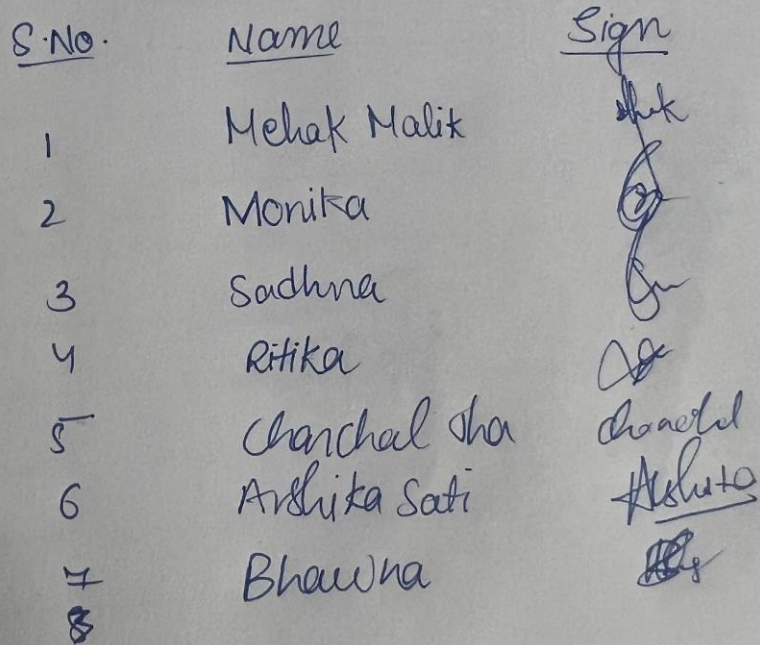 S.No. Name Sign
1 Mehak Malik
2 Monika
3 Sadhna
4 Ritika
5 Chanchal Jha
6 Arshika Sati
7 Bhawna
8